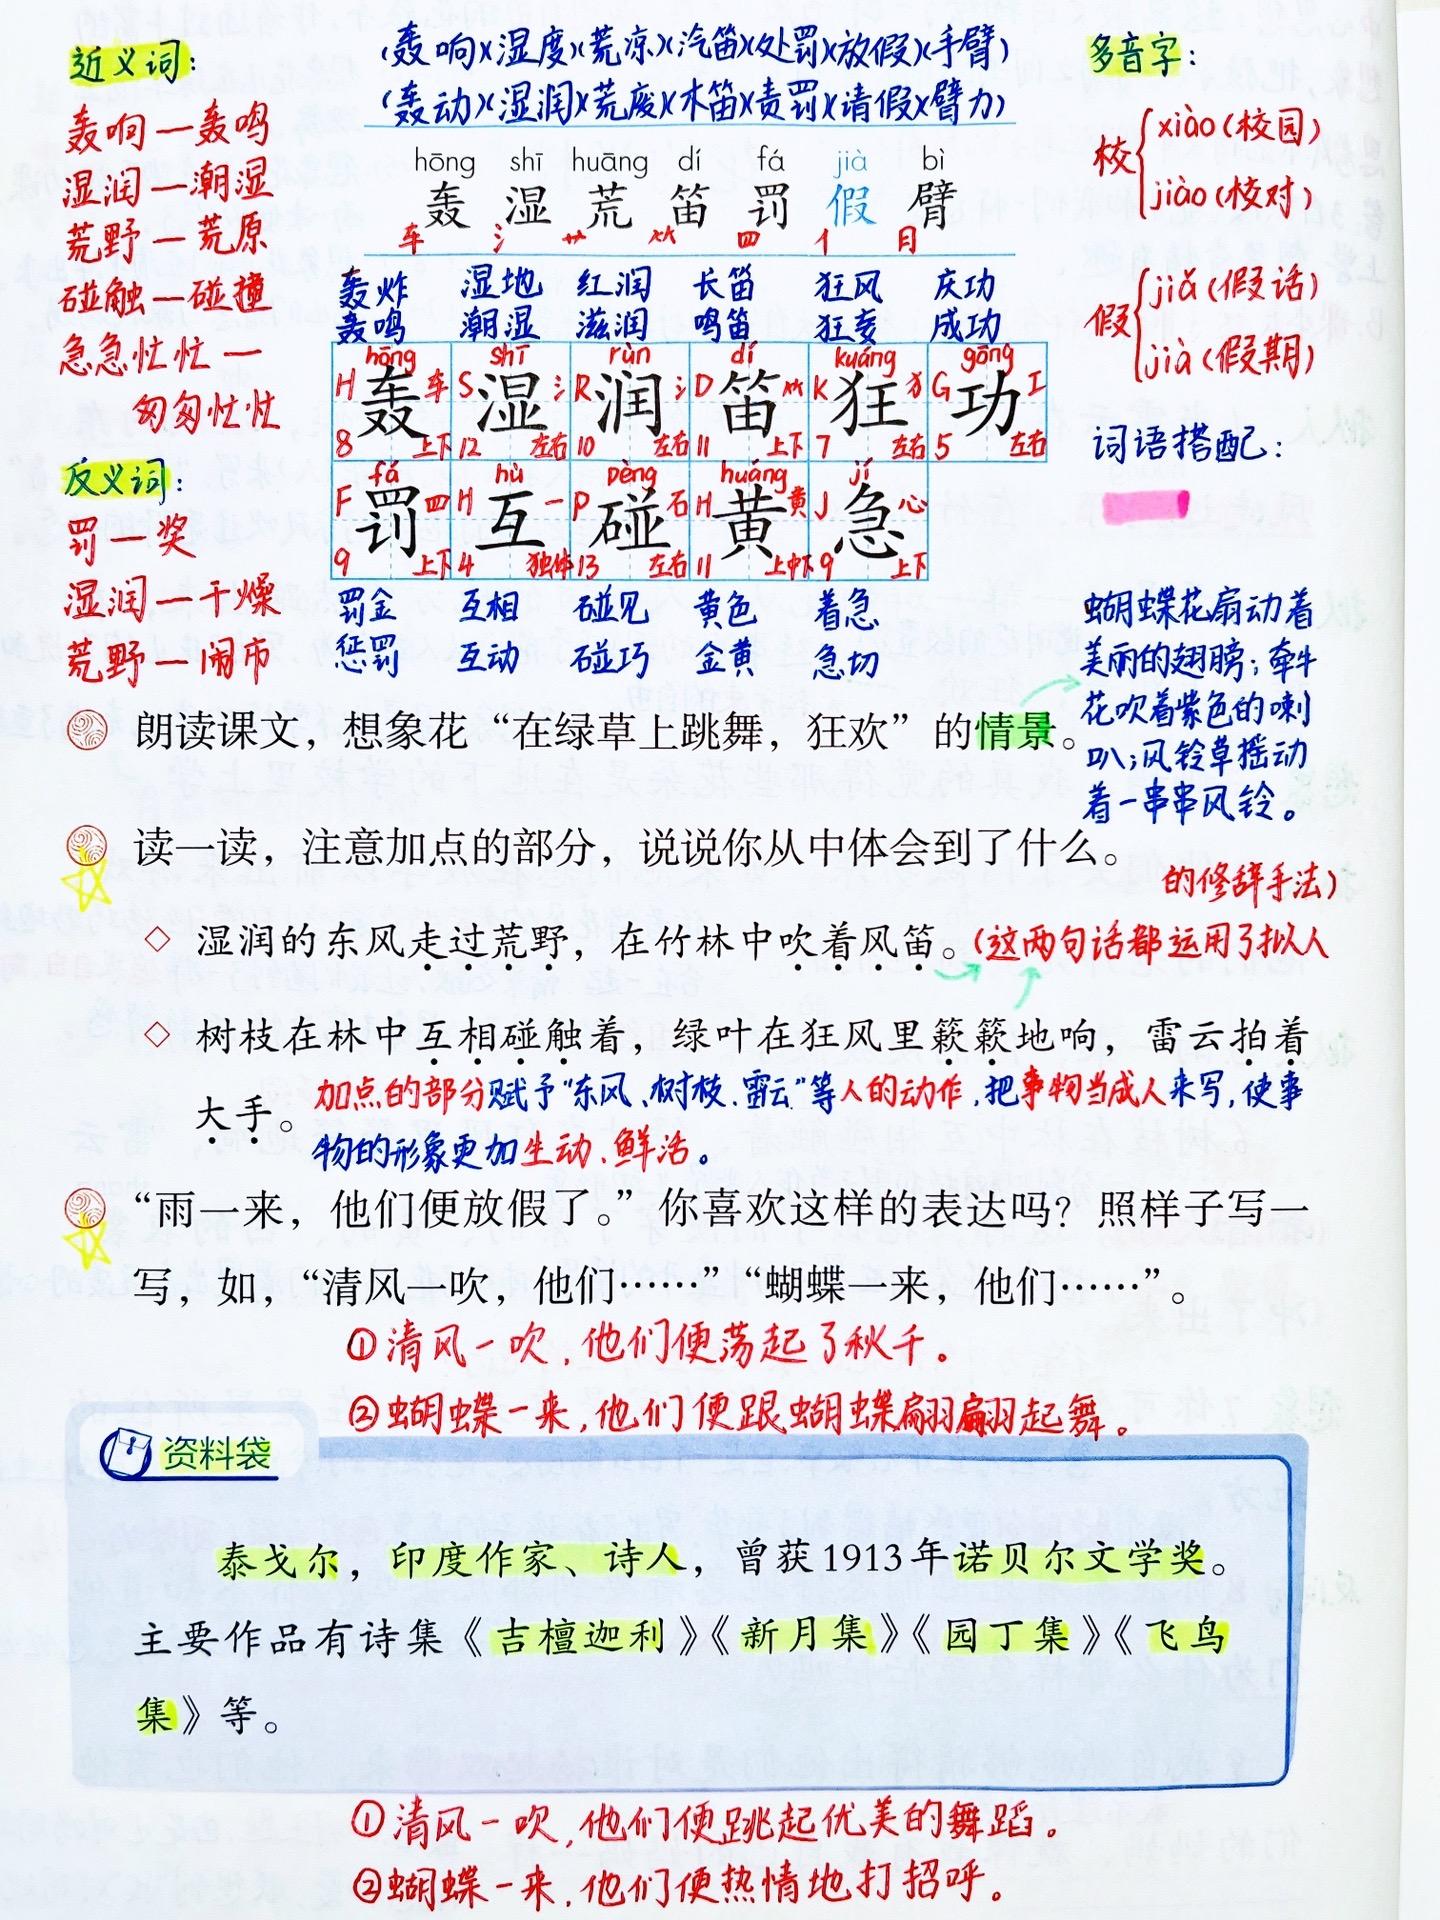 近义词：
轰响—轰鸣
湿润—潮湿
荒野—荒原
碰触—碰撞
急急忙忙—
匆匆忙忙
反义词：
罚—奖
湿润—干燥
荒野—闹市
(轰响)(湿度)(荒凉)(汽笛)(处罚)(放假)(手臂)
(轰动)(湿润)(荒废)(木笛)(责罚)(请假)(臂力)
hōng shī huāng dí fá jià bì
轰 湿 荒 笛 罚 假 臂
车 氵 艹 ⺮ 罒 亻 月
轰炸 湿地 红润 长笛 狂风 庆功
轰鸣 潮湿 滋润 鸣笛 狂妄 成功
hōng shī rùn dí kuáng gōng
H 轰 车 S 湿 氵 R 润 氵 D 笛 ⺮ K 狂 犭 G 功 工
8 上下 12 左右 10 左右 11 上下 7 左右 5 左右
fá hù pèng huáng jí
F 罚 罒 H 互 一 P 碰 石 H 黄 黄 J 急 心
9 上下 4 独体 13 左右 11 上中下 9 上下
罚金 互相 碰见 黄色 着急
惩罚 互动 碰巧 金黄 急切
多音字：
校{xiào(校园)
jiào(校对)
假{jiǎ(假话)
jià(假期)
词语搭配：
蝴蝶花扇动着
美丽的翅膀；牵牛
花吹着紫色的喇
叭；风铃草摇动
着一串串风铃。
朗读课文，想象花“在绿草上跳舞，狂欢”的情景。
读一读，注意加点的部分，说说你从中体会到了什么。
的修辞手法)
◇ 湿润的东风走过荒野，在竹林中吹着风笛。(这两句话都运用了拟人
◇ 树枝在林中互相碰触着，绿叶在狂风里簌簌地响，雷云拍着
大手。
加点的部分赋予“东风、树枝、雷云”等人的动作，把事物当成人来写，使事
物的形象更加生动、鲜活。
“雨一来，他们便放假了。”你喜欢这样的表达吗？照样子写一
写，如，“清风一吹，他们……”“蝴蝶一来，他们……”。
①清风一吹，他们便荡起了秋千。
②蝴蝶一来，他们便跟蝴蝶翩翩起舞。
资料袋
泰戈尔，印度作家、诗人，曾获1913年诺贝尔文学奖。
主要作品有诗集《吉檀迦利》《新月集》《园丁集》《飞鸟
集》等。
①清风一吹，他们便跳起优美的舞蹈。
②蝴蝶一来，他们便热情地打招呼。